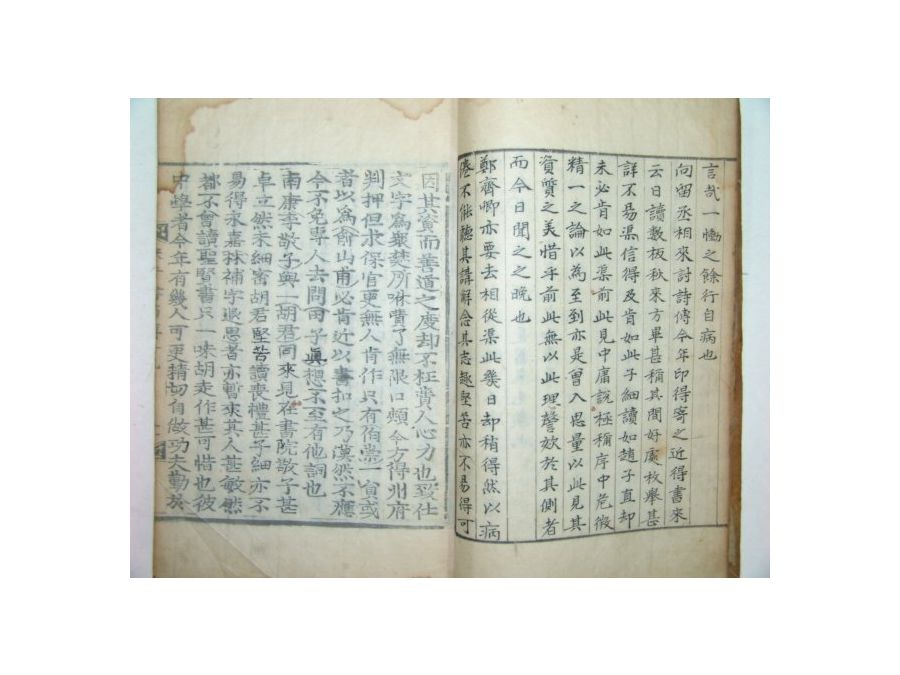 言哉一慟之餘行自病也
向留丞相來討詩傳今年印得寄之近得書來
云日讀數板秋來方畢甚稱其間好處枚舉甚
詳不易渠信得及肯如此子細讀如趙子直却
未必肯如此渠前此見中庸說極稱序中危微
精一之論以為至到亦是曾入思量以此見其
資質之美惜乎前此無以此理謦欬於其側者
而今日聞之之晚也
鄭齊卿亦要去相從渠此幾日却稍得然以病
倦不能聽其講解念其志趣堅苦亦不易得可
因其資而善道之度却不枉費人心力也致仕
文字為衆楚所咻費了無限口頰今方得州府
判押但求保官更無人肯作只有伯崇一員或
者以為俞山甫必肯近以書扣之乃漠然不應
今不免專人去問田子真想不至有他詞也
南康李敬子與一胡君同來見在書院敬子甚
卓立然未細密胡君堅苦讀喪禮甚子細亦不
易得永嘉林補字退思者亦暫來其人甚敏然
都不會讀聖賢書只一味胡走作甚可惜也彼
中學者今年有幾人可更精切自做功夫勤於